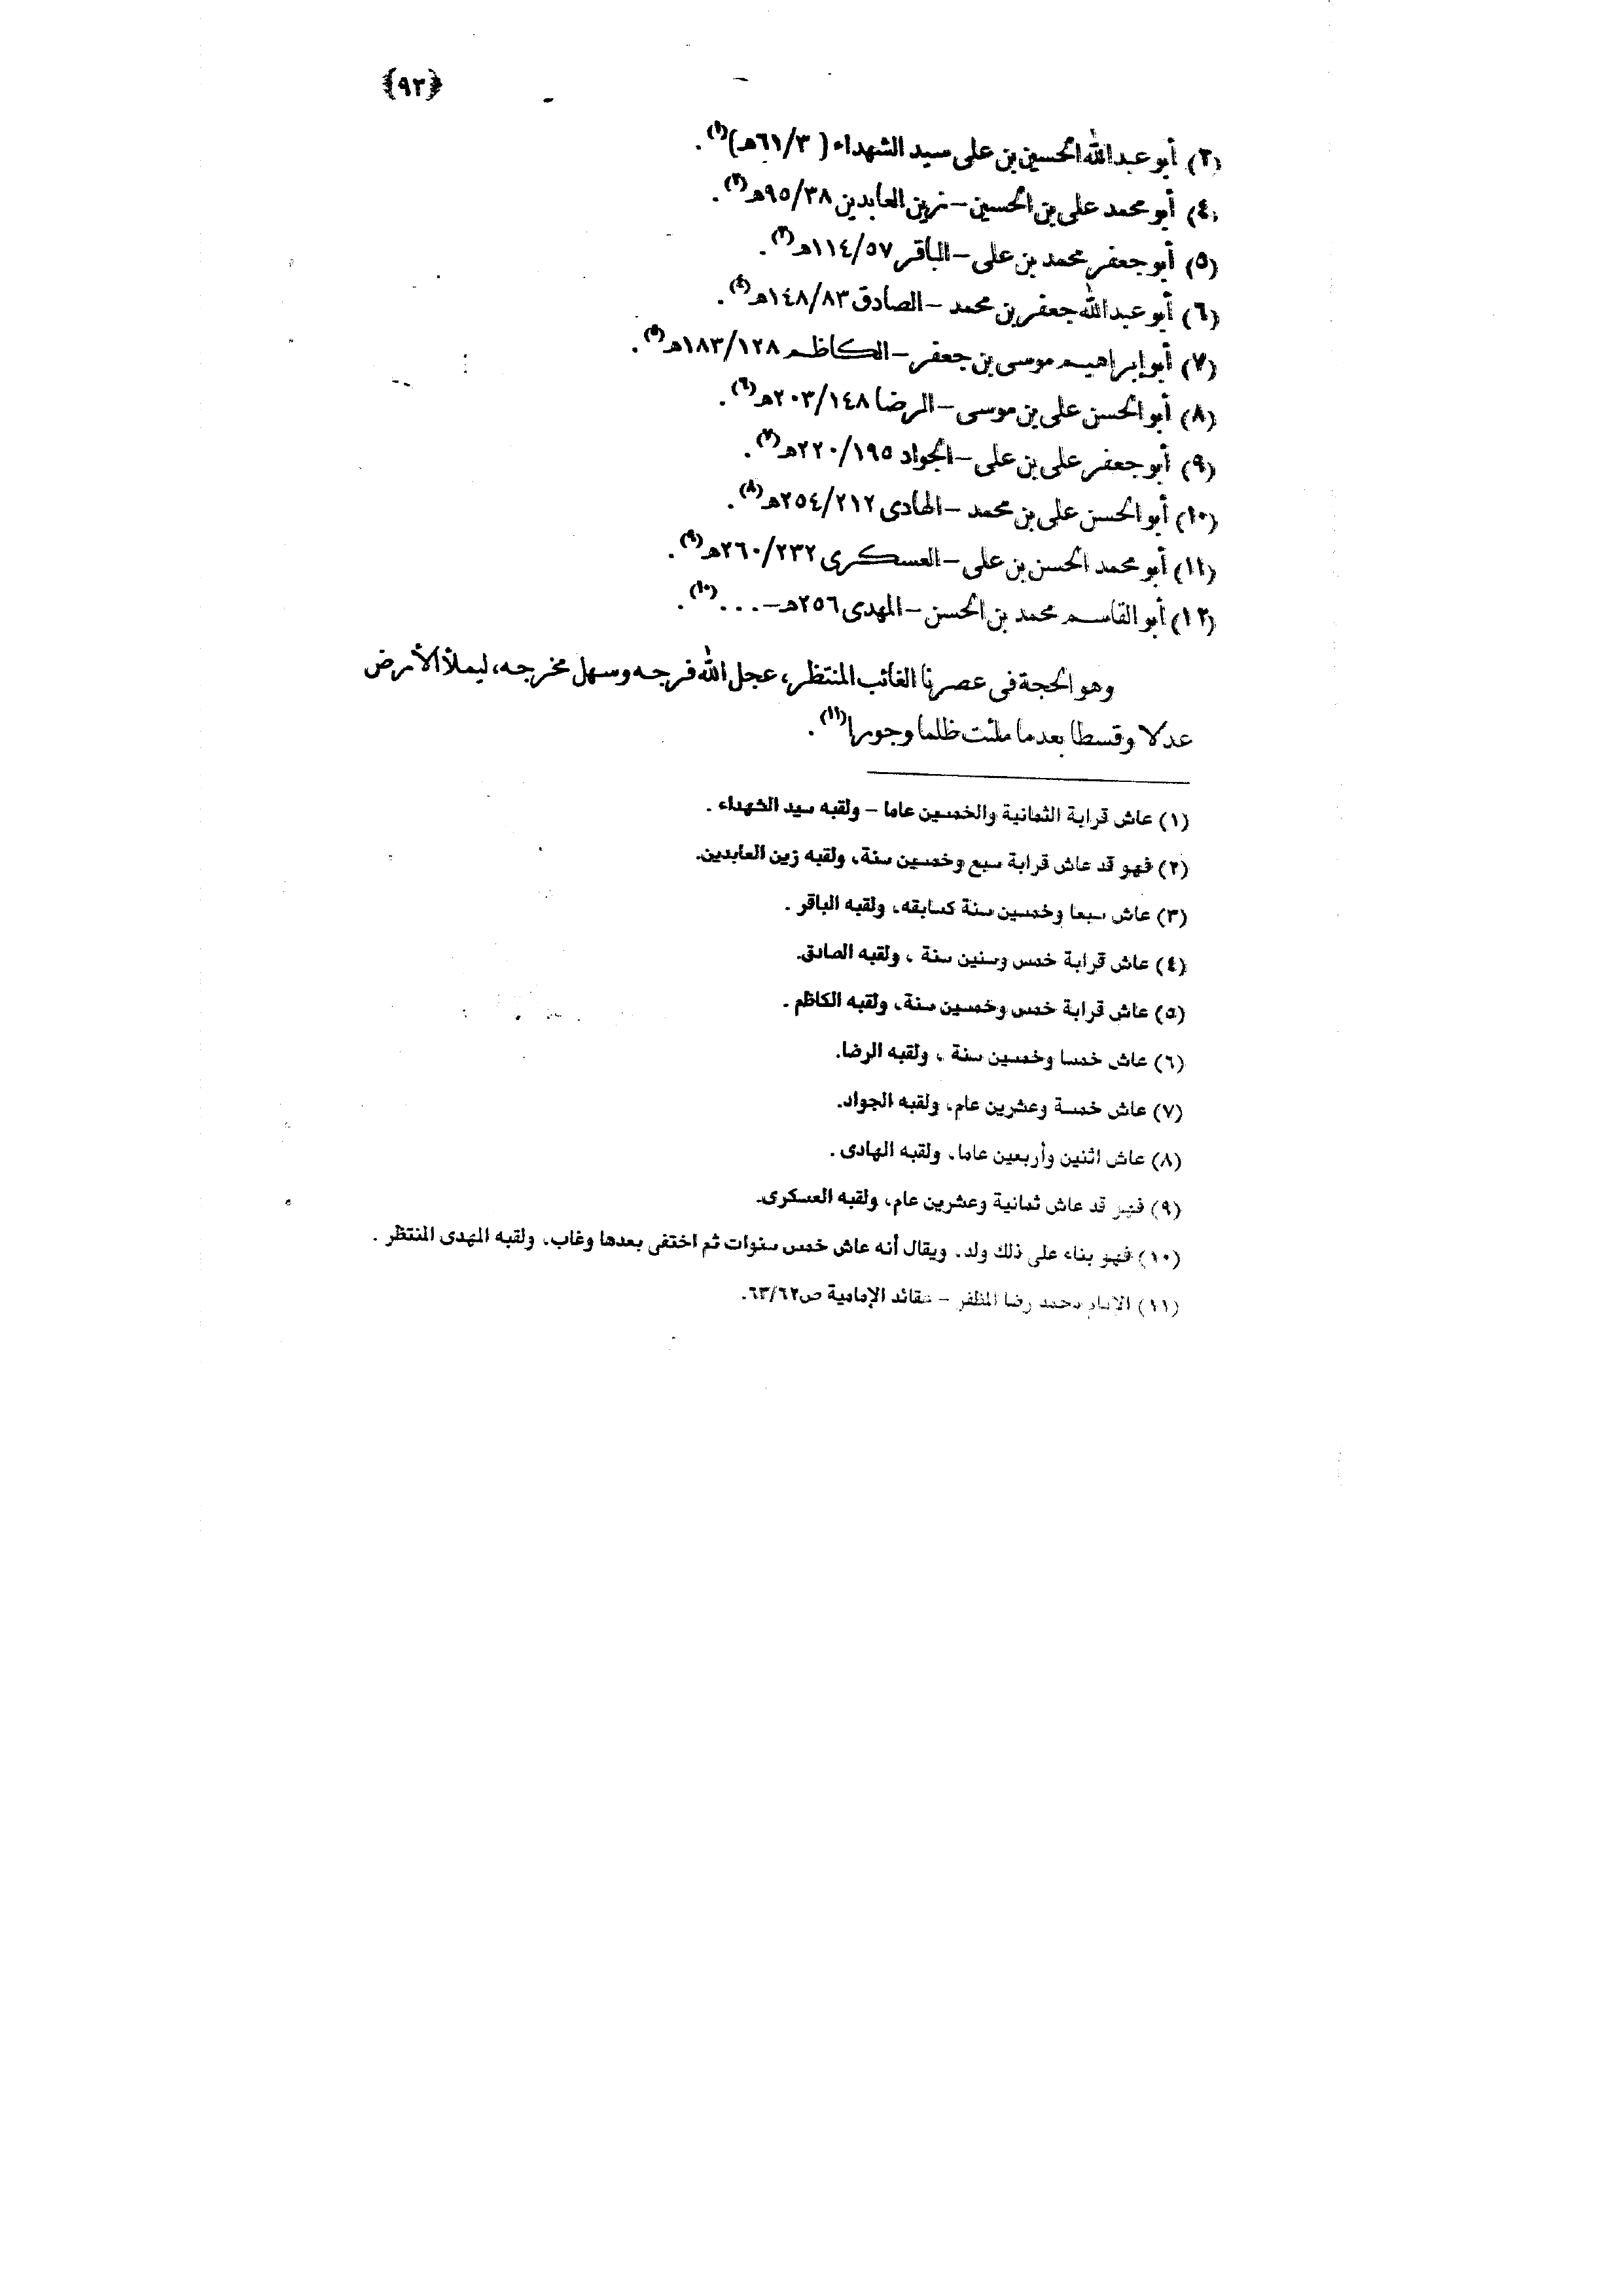 ﴿٩٣﴾
(٣) أبو عبدالله الحسين بن على سيد الشهداء ( ٦١/٣هـ)(١).
(٤) أبو محمد على بن الحسين – زين العابدين ٩٥/٣٨هـ(٢).
(٥) أبو جعفر محمد بن على – الباقر ١١٤/٥٧هـ(٣).
(٦) أبو عبدالله جعفر بن محمد – الصادق ١٤٨/٨٣هـ(٤).
(٧) أبو إبراهيم موسى بن جعفر – الكاظم ١٨٣/١٢٨هـ(٥).
(٨) أبو الحسن على بن موسى – الرضا ٢٠٣/١٤٨هـ(٦).
(٩) أبو جعفر على بن على – الجواد ٢٢٠/١٩٥هـ(٧).
(١٠) أبو الحسن على بن محمد – الهادى ٢٥٤/٢١٢هـ(٨).
(١١) أبو محمد الحسن بن على – العسكرى ٢٦٠/٢٣٢هـ(٩).
(١٢) أبو القاسم محمد بن الحسن – المهدى ٢٥٦هـ – ...(١٠).
وهو الحجة فى عصرنا الغائب المنتظر، عجل الله فرجه وسهل مخرجه، ليملأ الأرض
عدلا وقسطا بعدما ملئت ظلما وجورا(١١).
(١) عاش قرابة الثمانية والخمسين عاما – ولقبه سيد الشهداء .
(٢) فهو قد عاش قرابة سبع وخمسين سنة، ولقبه زين العابدين.
(٣) عاش سبعا وخمسين سنة كسابقه، ولقبه الباقر .
(٤) عاش قرابة خمس وستين سنة ، ولقبه الصادق.
(٥) عاش قرابة خمس وخمسين سنة، ولقبه الكاظم .
(٦) عاش خمسا وخمسين سنة ، ولقبه الرضا.
(٧) عاش خمسة وعشرين عام، ولقبه الجواد.
(٨) عاش اثنين وأربعين عاما، ولقبه الهادى .
(٩) فهو قد عاش ثمانية وعشرين عام، ولقبه العسكرى.
(١٠) فهو بناء على ذلك ولد، ويقال أنه عاش خمس سنوات ثم اختفى بعدها وغاب، ولقبه المهدى المنتظر .
(١١) الإمام محمد رضا المظفر – عقائد الإمامية ص٦٣/٦٢.